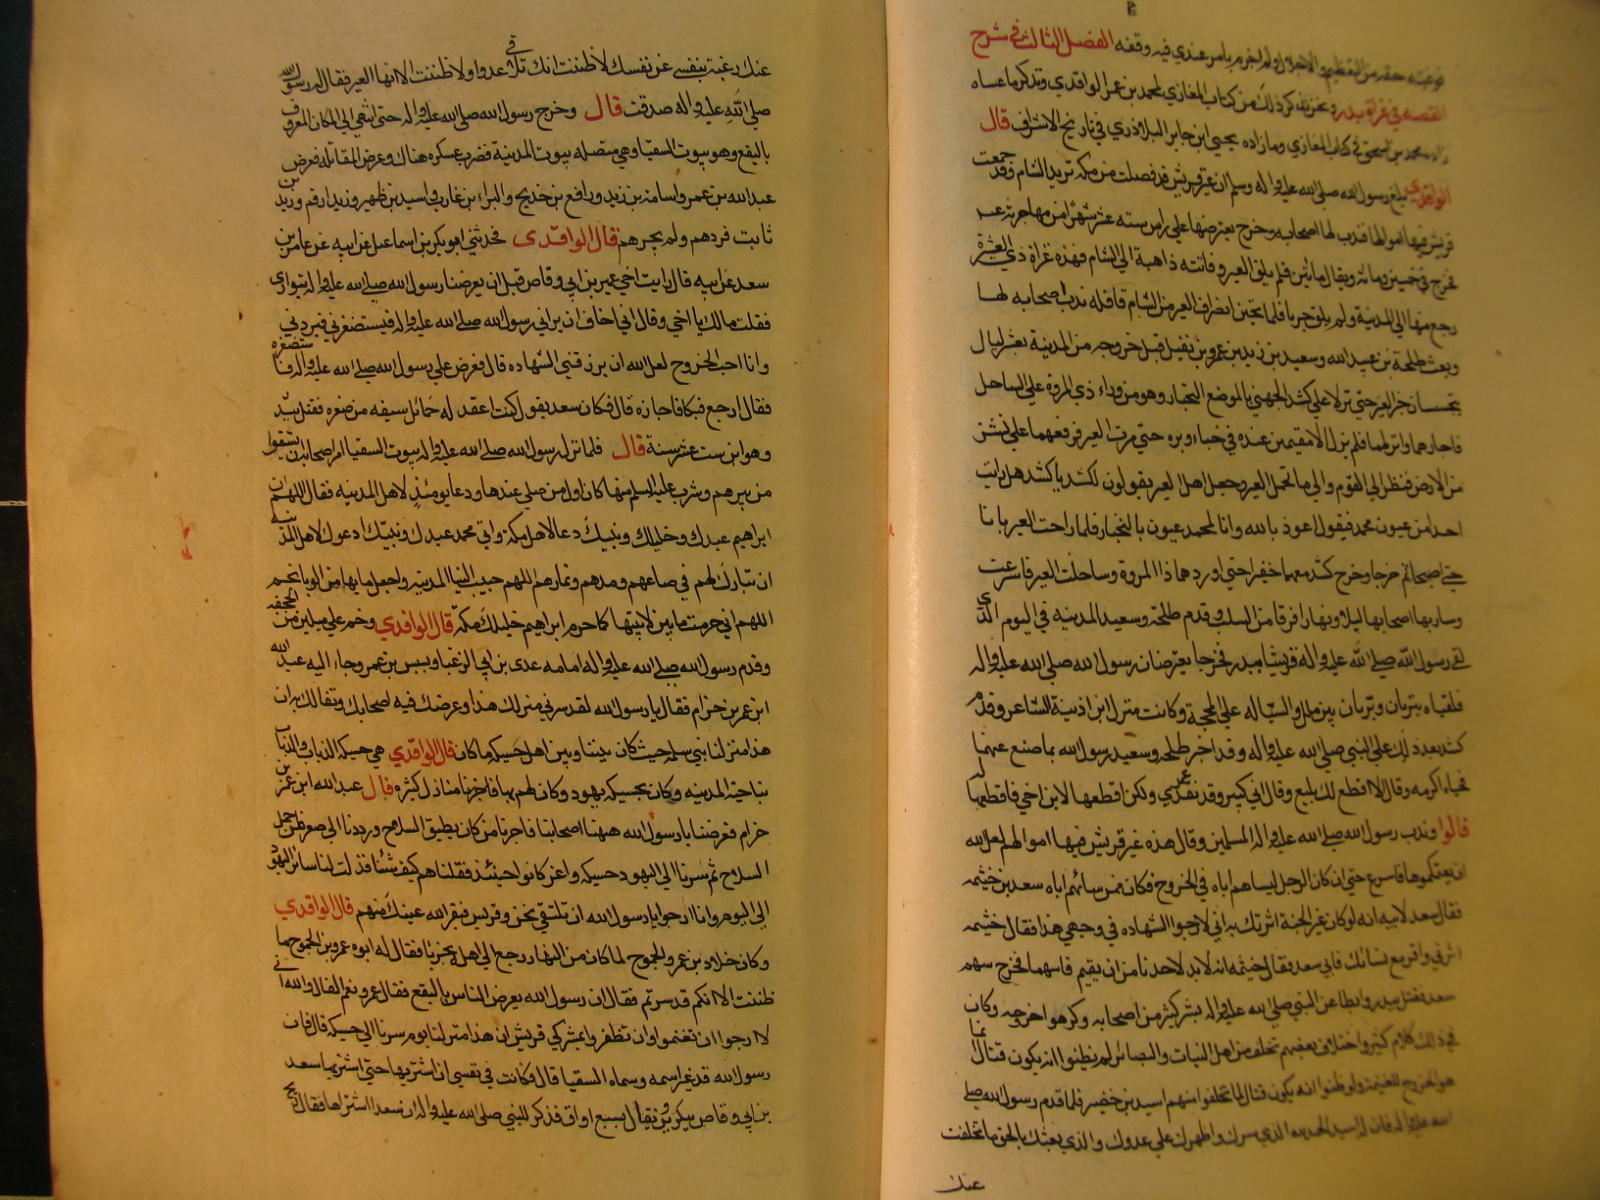 توفيته حقه من التعظيم والاجلال ولم اجزم بامر عندي فيه وقفه الفصل الثالث في شرح
القصه في غزاة بدر ونحن نذكر ذلك من كتاب المغازي لمحمد بن عمر الواقدي ونذكر ما عساه
زاده محمد بن اسحق في كتاب المغازي وما زاده يحيى ابن جابر البلاذري في تاريخ الاشراف قال
الواقدي بلغ رسول الله صلى الله عليه واله وسلم ان عير قريش قد فصلت من مكه تريد الشام وقد جمعت
قريش فيها اموالها فندب لها اصحابه وخرج يعترضها على راس سته عشر شهرا من مهاجرته عم
فخرج في خمسين ومائه ويقال مائتين فلم يلق العير وفاتته ذاهبة الى الشام فهذه غزاة ذي العشيرة
رجع منها الى المدينة ولم يلق حربا فلما تحين انصراف العير من الشام قافله ندب اصحابه لها
وبعث طلحة بن عبيد الله وسعيد بن زيد بن عمرو بن نفيل قبل خروجه من المدينة بعشر ليال
يتجسسان خبر العير حتى نزلا على كشد الجهني بالموضع النخبار وهو من وراء ذي المروة على الساحل
فاجارهما وانزلهما فلم يزالا مقيمين عنده في خباء وبره حتى مرت العير فرفعهما على نشز
من الارض فنظرا الى القوم والى ما تحمل العير وجعل اهل العير يقولون لكشد يا كشد هل رايت
احدا من عيون محمد فيقول اعوذ بالله وانا لمحمد عيون بالنخبار فلما راحت العير باتا
حتى اصبحا ثم خرجا وخرج كشد معهما خفيرا حتى اوردهما ذا المروة وساحلت العير فاسرعت
وسار بها اصحابها ليلا ونهارا فرقا من الطلب وقدم طلحة وسعيد المدينه في اليوم الذي
لقى رسول الله صلى الله عليه واله قريشا ببدر فخرجا يعترضان رسول الله صلى الله عليه واله
فلقياه بتربان وتربان بين ملل والسياله على المحجة وكانت منزل ابن اذينة الشاعر وقدم
كشد بعد ذلك على النبي صلى الله عليه واله وقد اخبر طلحه وسعيد رسول الله بما صنع عنهما
فحياه اكرمه وقال الا اقطع لك ينبع وقال اني كبير وقد نفد عمري ولكن اقطعها لابن اخي فاقطعها له
قالوا وندب رسول الله صلى الله عليه واله المسلمين وقال هذه عير قريش فيها اموالهم لعل الله
ان يغنمكموها فاسرع حتى ان كان الرجل ليساهم اباه في الخروج فكان ممن ساهم اباه سعد بن خيثمه
فقال سعد لابيه انه لو كان غير الجنة اثرتك به اني لارجوا الشهاده في وجهي هذا فقال خيثمه
اثرني واقر مع نسائك فابى سعد فقال خيثمه انه لابد لاحدنا من ان يقيم فاستهما فخرج سهم
سعد فقتل ببدر وابطا عن النبي صلى الله عليه واله بشر كثير من اصحابه وكرهوا خروجه وكان
في ذلك كلام كثير واختلاف بعضهم تخلف من اهل النيات والبصائر لم يظنوا انه يكون قتال انما
هو الخروج للغنيمه ولو ظنوا انه يكون قتال لما تخلفوا منهم اسيد بن حضير فلما قدم رسول الله صلى
الله عليه واله قال له اسيد الحمد لله الذي سرك واظهرك على عدوك والذي بعثك بالحق ما تخلفت
عنك
عنك رغبة بنفسي عن نفسك لا ظننت انك تلاقى عدوا ولا ظننت الا انها العير فقال له رسول الله
صلى الله عليه واله صدقت قال وخرج رسول الله صلى الله عليه واله حتى انتهى الى المكان المعروف
بالبقع وهو بيوت السقيا وهي متصله ببيوت المدينة فضرب عسكره هناك وعرض المقاتله فعرض
عبد الله بن عمر واسامه بن زيد ورافع بن خديج والبراء بن عازب واسيد بن ظهير وزيد ارقم وزيد بن
ثابت فردهم ولم يجزهم قال الواقدي فحدثني ابو بكر بن اسماعيل عن ابيه عن عامر بن
سعد عن ابيه قال رايت اخي عمير بن ابي وقاص قبل ان يعرضنا رسول الله صلى الله عليه واله يتوارى
فقلت مالك يا اخي وقال اني اخاف ان يراني رسول الله صلى الله عليه واله فيستصغرني فيردني
وانا احب الخروج لعل الله ان يرزقني الشهاده قال فعرض على رسول الله صلى الله عليه واله فاستصغره
فقال ارجع فبكا فاجازه قال فكان سعد يقول كنت اعقد له حمائل سيفه من صغره فقتل ببدر
وهو ابن ست عشر سنة قال فلما نزل رسول الله صلى الله عليه واله بيوت السقيا امر اصحابه ان يستقوا
من بيرهم وشرب عليه السلم منها كان اول من صلى عندها ودعا يومئذ لاهل المدينه فقال اللهم ان
ابراهيم عبدك وخليلك ونبيك دعا لاهل مكة واني محمد عبدك ونبيك ادعوك لاهل المدينه
ان تبارك لهم في صاعهم ومدهم وثمارهم اللهم حبب الينا المدينه واجعل ما بها من الوباء بخم
اللهم اني حرمت ما بين لابتيها كما حرم ابراهيم خليلك مكة قال الواقدي وخم على ميلين من الجحفه
وقدم رسول الله صلى الله عليه واله امامه عدى بن ابي الزغبا وبسبس بن عمر وجاء اليه عبد الله
ابن عمر بن حزام فقال يا رسول الله لقد سرني منزلك هذا وعرضك فيه اصحابك وتفالك به ان
هذا منزلنا بني سلمه حيث كان بيننا وبين اهل حسيكه ما كان قال الواقدي هي حسيكة الذباب والذباب
بناحية المدينه وكان بحسيكه يهود وكان لهم بها منازل كثيره قال عبد الله ابن عمر بن
حزام فعرضنا يا رسول الله ههنا اصحابنا فاجزنا من كان يطيق السلاح ورددنا الى صغر عن حمل
السلاح ثم سرنا الى اليهود حسيكه واعز كانوا حينئذ فقتلناهم كيف شئنا فذلت لنا سائر اليهود
الى اليوم وانا ارجوا يا رسول الله ان نلتقي نحن وقريس فيقر الله عينك منهم قال الواقدي
وكان خلاد بن عمرو الجموح لما كان من النهار رجع الى اهله بخربا فقال له ابوه عمرو بن الجموح ما
ظننت الا انكم قد سرتم فقال ان رسول الله يعرض الناس بالبقع فقال عمرو نعم الفال والله اني
لارجوا ان تغنموا وان تظفروا بمشركي قريش ان هذا منزلنا يوم سرنا الى حسيكه قال فان
رسول الله قد غير اسمه وسماه السقيا قال فكانت في نفسي ان اشتريها حتى اشتريها سعد
بن ابي وقاص ببكرين ويقال بسبع اواق فذكر للنبي صلى الله عليه واله ان سعدا اشتراها فقال ربح